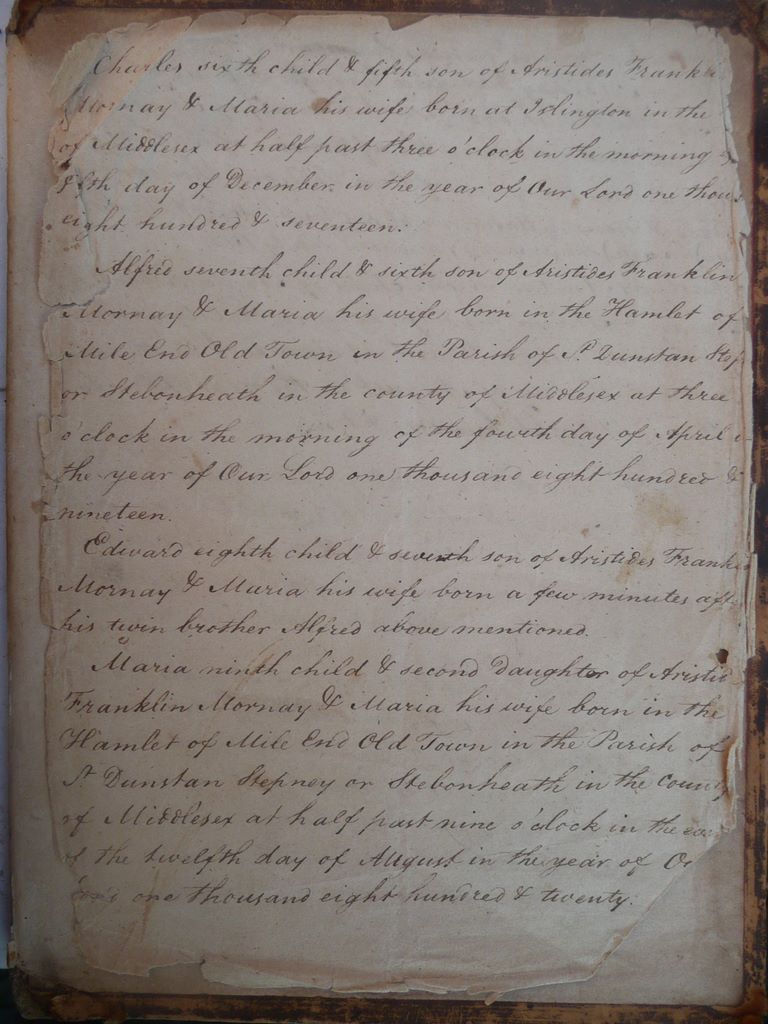 Charles sixth child & fifth son of Aristides Frankli
Mornay & Maria his wife born at Islington in the
of Middlesex at half past three o'clock in the morning
day of December in the year of Our Lord one thous
eight hundred & seventeen.
Alfred seventh child & sixth son of Aristides Franklin
Mornay & Maria his wife born in the Hamlet of
Mile End Old Town in the Parish of St Dunstan Step
or Stebonheath in the county of Middlesex at three
o'clock in the morning of the fourth day of April
the year of Our Lord one thousand eight hundred &
nineteen.
Edward eighth child & seventh son of Aristides Frankl
Mornay & Maria his wife born a few minutes aft
his twin brother Alfred above mentioned.
Maria ninth child & second Daughter of Aristid
Franklin Mornay & Maria his wife born in the
Hamlet of Mile End Old Town in the Parish of
St Dunstan Stepney or Stebonheath in the county
of Middlesex at half past nine o'clock in the
of the twelfth day of August in the year of Ou
Lord one thousand eight hundred & twenty.